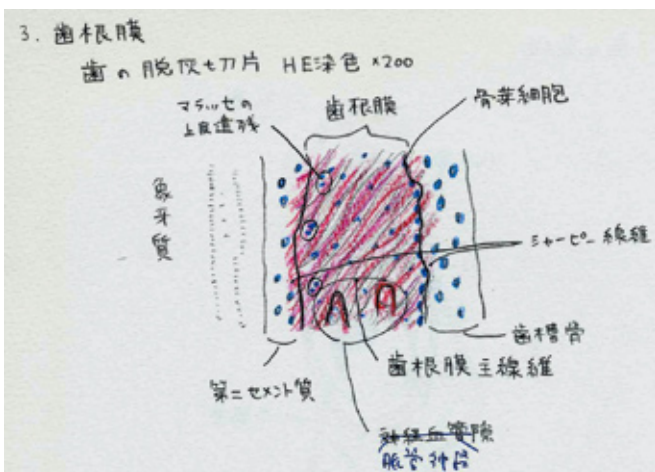 3. 歯根膜
歯の脱灰切片 HE染色 ×200
マラッセの
上皮遺残
歯根膜
骨芽細胞
象牙質
シャーピー線維
歯槽骨
歯根膜主線維
第二セメント質